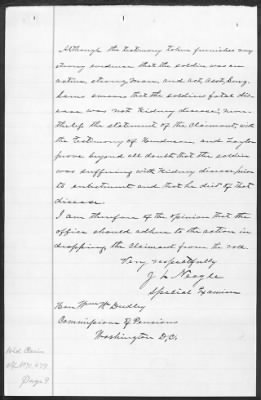 Although the testimony taken furnishes very
strong evidence that the soldier was an
active, strong man, and Act, Asst, Surg,
swears that the soldiers fatal dis-
ease was not Kidney disease; never-
theless the statement of the claimant, with
the testimony of Henderson and Taylor
prove beyond all doubt that the soldier
was suffering with Kidney disease prior
to enlistment and that he died of that
disease.
I am therefore of the opinion that the
office should adhere to the action in
dropping the claimant from the roll.
Very respectfully
J. L. Neagle
Special Examiner
Hon Wm W Dudley
Commissioner of Pensions
Washington D.C.
Wid. Orig
Page 9